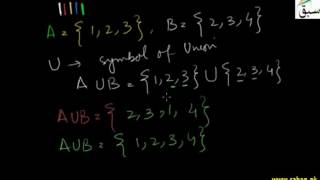 سبق
A = {1, 2, 3}, B = {2, 3, 4}
U → symbol of Union
A U B = {1, 2, 3} U {2, 3, 4}
A U B = {2, 3, 1, 4}
A U B = {1, 2, 3, 4}
www.sabaq.pk